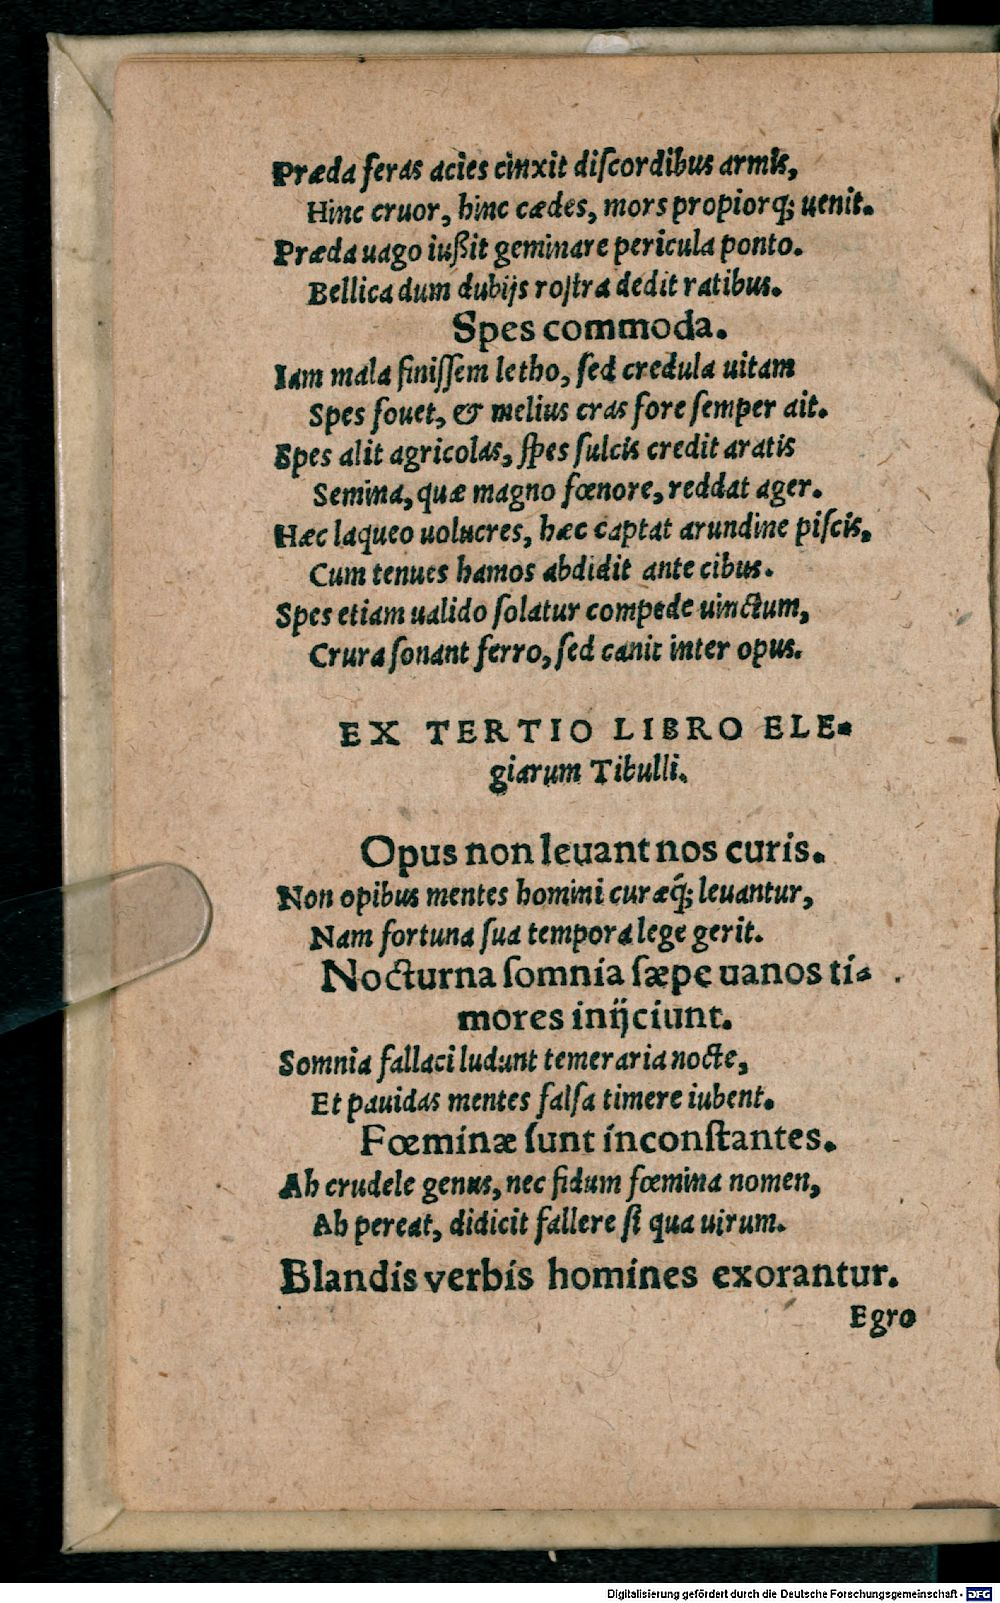 Præda feras acies cinxit diſcordibus armis,
Hinc cruor, hinc cædes, mors propiorq; uenit.
Præda uago iußit geminare pericula ponto.
Bellica dum dubijs roſtra dedit ratibus.
Spes commoda.
Iam mala finiſſem letho, ſed credula uitam
Spes fouet, & melius cras fore ſemper ait.
Spes alit agricolas, ſpes ſulcis credit aratis
Semina, quæ magno fœnore, reddat ager.
Hæc laqueo uolucres, hæc captat arundine piſcis,
Cum tenues hamos abdidit ante cibus.
Spes etiam ualido ſolatur compede uinctum,
Crura ſonant ferro, ſed canit inter opus.
EX TERTIO LIBRO ELE-
giarum Tibulli.
Opus non leuant nos curis.
Non opibus mentes homini curæq́; leuantur,
Nam fortuna ſua tempora lege gerit.
Nocturna ſomnia ſæpe uanos ti-
mores inijciunt.
Somnia fallaci ludunt temeraria nocte,
Et pauidas mentes falſa timere iubent.
Fœminæ ſunt inconſtantes.
Ah crudele genus, nec fidum fœmina nomen,
Ah pereat, didicit fallere ſi qua uirum.
Blandis verbis homines exorantur.
Egro
Digitalisierung gefördert durch die Deutsche Forschungsgemeinschaft - DFG